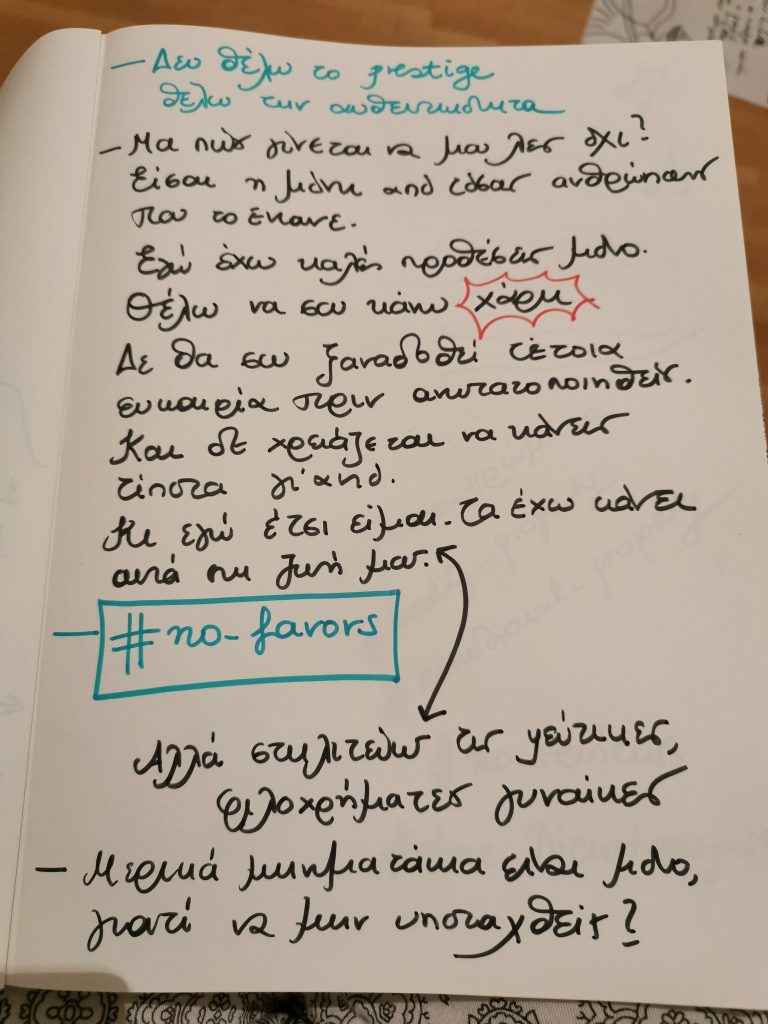 — Δεν θέλω το prestige
θέλω την αυθεντικότητα
— Μα πώς γίνεται να μου λες όχι?
Είσαι η μόνη από τόσους ανθρώπους
που το έκανε.
Εγώ έχω καλές προθέσεις μόνο.
Θέλω να σου κάνω χάρη
Δε θα σου ξαναδοθεί τέτοια
ευκαιρία πριν
Και δε χρειάζεται να κάνεις
τίποτα γι' αυτό.
Κι εγώ έτσι είμαι. τα έχω κάνει
αυτά στη ζωή μου.
— #no-favors
Αλλά στηλιτεύω τις ψεύτικες,
φιλοχρήματες γυναίκες
— Μερικά μηνηματάκια είναι μόνο,
γιατί να μην υποταχθείς?